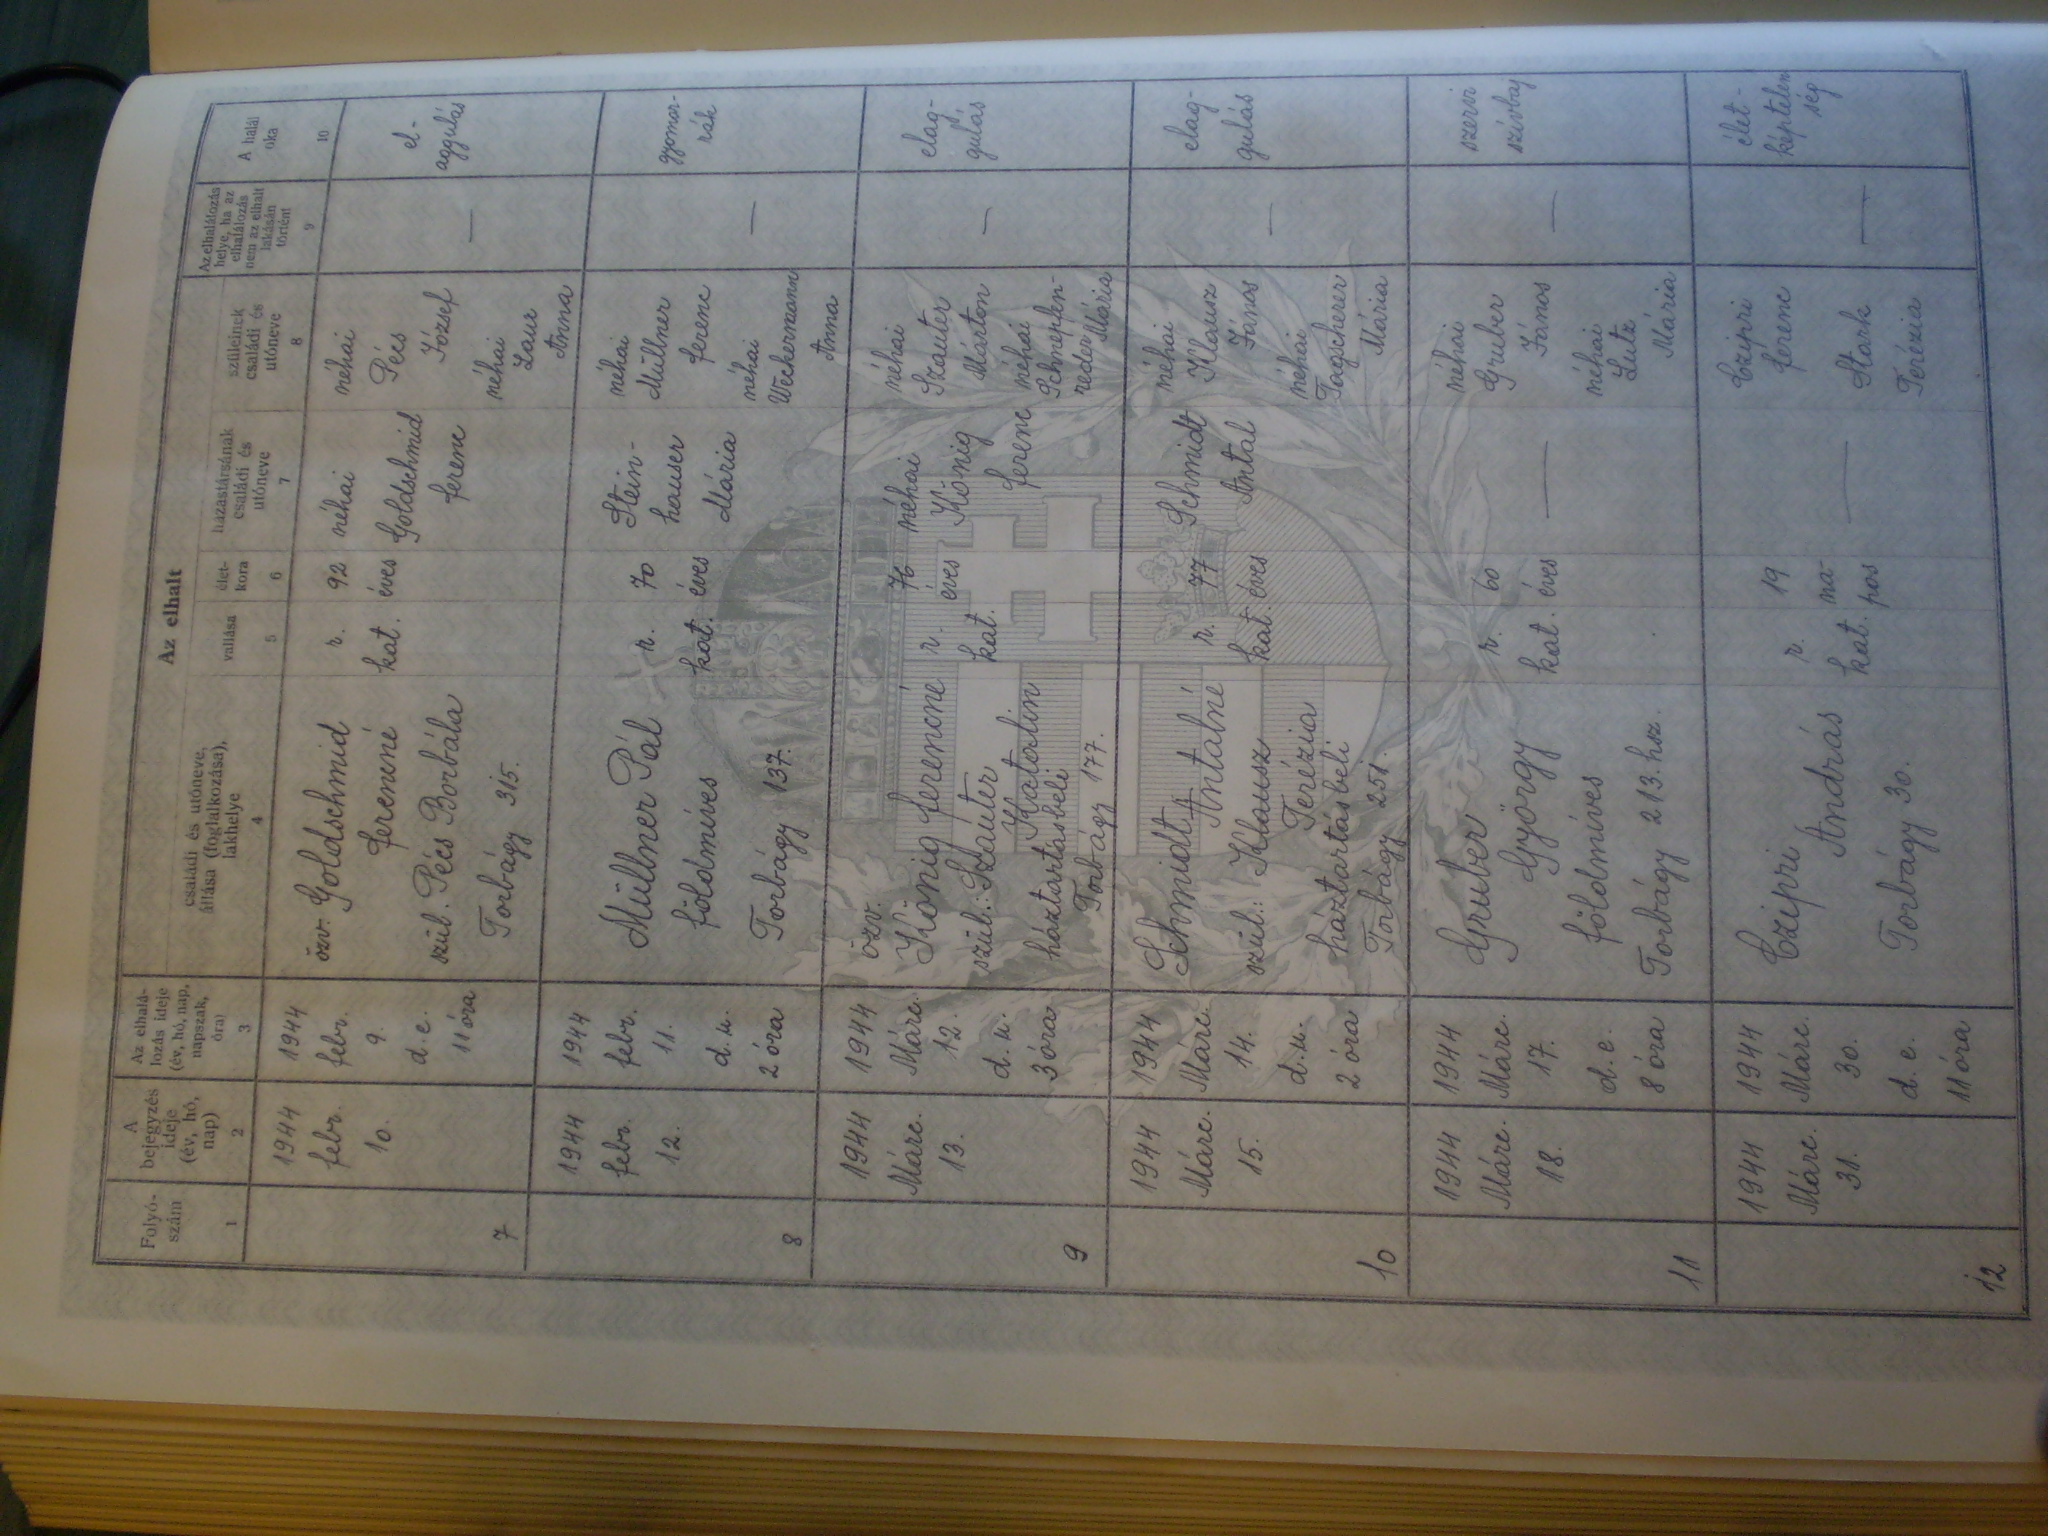 Az elhalt
Folyó-
szám
A
bejegyzés
ideje
(év, hó,
nap)
Az elhalá-
lozás ideje
(év, hó, nap,
napszak,
óra)
családi és utóneve,
állása (foglalkozása),
lakhelye
vallása
élet-
kora
házastársának
családi és
utóneve
szüleinek
családi és
utóneve
Az elhalálozás
helye, ha az
elhalálozás
nem az elhalt
lakásán
történt
A halál
oka
1
2
3
4
5
6
7
8
9
10
7
1944
febr.
10.
1944
febr.
9.
d. e.
11 óra
özv. Goldschmid
Ferencné
szül. Pécs Borbála
Torbágy 315.
r.
kat.
92
éves
néhai
Goldschmid
Ferenc
néhai
Pécs
József
néhai
Laur
Anna
—
el-
aggulás
8
1944
febr.
12.
1944
febr.
11.
d. u.
2 óra
Müllner Pál
földmíves
Torbágy 137.
r.
kat.
70
éves
Stein-
hauser
Mária
néhai
Müllner
Ferenc
néhai
Weckermann
Anna
—
gyomor-
rák
9
1944
Márc.
13.
1944
Márc.
12.
d. u.
3 óra
özv.
König Ferencné
szül.: Szauter
Katalin
háztartásbeli
Torbágy 177.
r.
kat.
76
éves
néhai
König
Ferenc
néhai
Szauter
Márton
néhai
Mária
—
elag-
gulás
10
1944
Márc.
15.
1944
Márc.
14.
d. u.
2 óra
Schmidt
Antalné
szül.: Klausz
Terézia
háztartásbeli
Torbágy 251.
r.
kat.
77
éves
Schmidt
Antal
néhai
Klausz
János
néhai
Mária
—
elag-
gulás
11
1944
Márc.
18.
1944
Márc.
17.
d. e.
8 óra
Gruber
György
földmíves
Torbágy 213. hsz.
r.
kat.
60
éves
—
néhai
Gruber
János
néhai
Lutz
Mária
—
szervi
szívbaj
12
1944
Márc.
31.
1944
Márc.
30.
d. e.
11 óra
Czipri
András
Torbágy 30.
r.
kat.
19
na-
pos
—
Czipri
Ferenc
Stark
Terézia
—
élet-
képtelen
ség